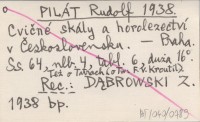 PILÁT Rudolf 1938.
Cvičné skály a horolezectví
v Československu. — Praha.
Ss. 64, nlb. 4, tabl. 6, duża 16°.
Też o Tatrach (o Tat. F. V. Kroutil).
Rec.: DĄBROWSKI Z.
1938 bp.
MT/040/0789